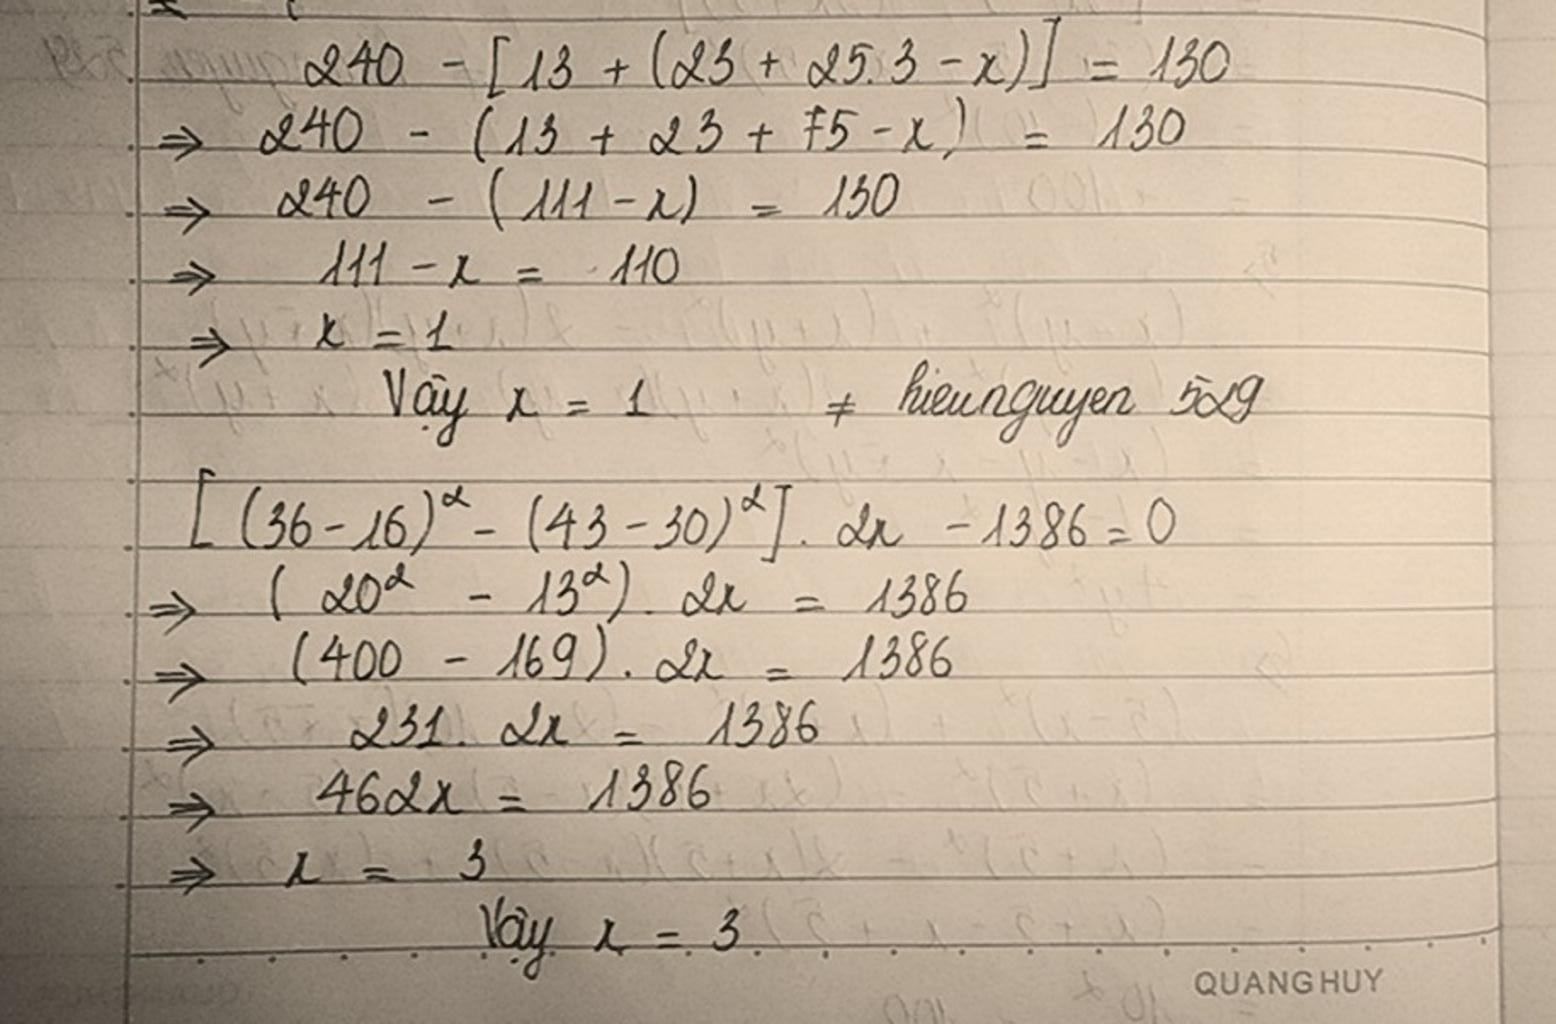 240 - [13 + (23 + 25.3 - x)] = 130
⇒ 240 - (13 + 23 + 75 - x) = 130
⇒ 240 - (111 - x) = 130
⇒ 111 - x = 110
⇒ x = 1
Vậy x = 1 ≠ hieunguyen 529
[(36 - 16)² - (43 - 30)²]. 2x - 1386 = 0
⇒ (20² - 13²). 2x = 1386
⇒ (400 - 169). 2x = 1386
⇒ 231. 2x = 1386
⇒ 462x = 1386
⇒ x = 3
Vậy x = 3
QUANG HUY